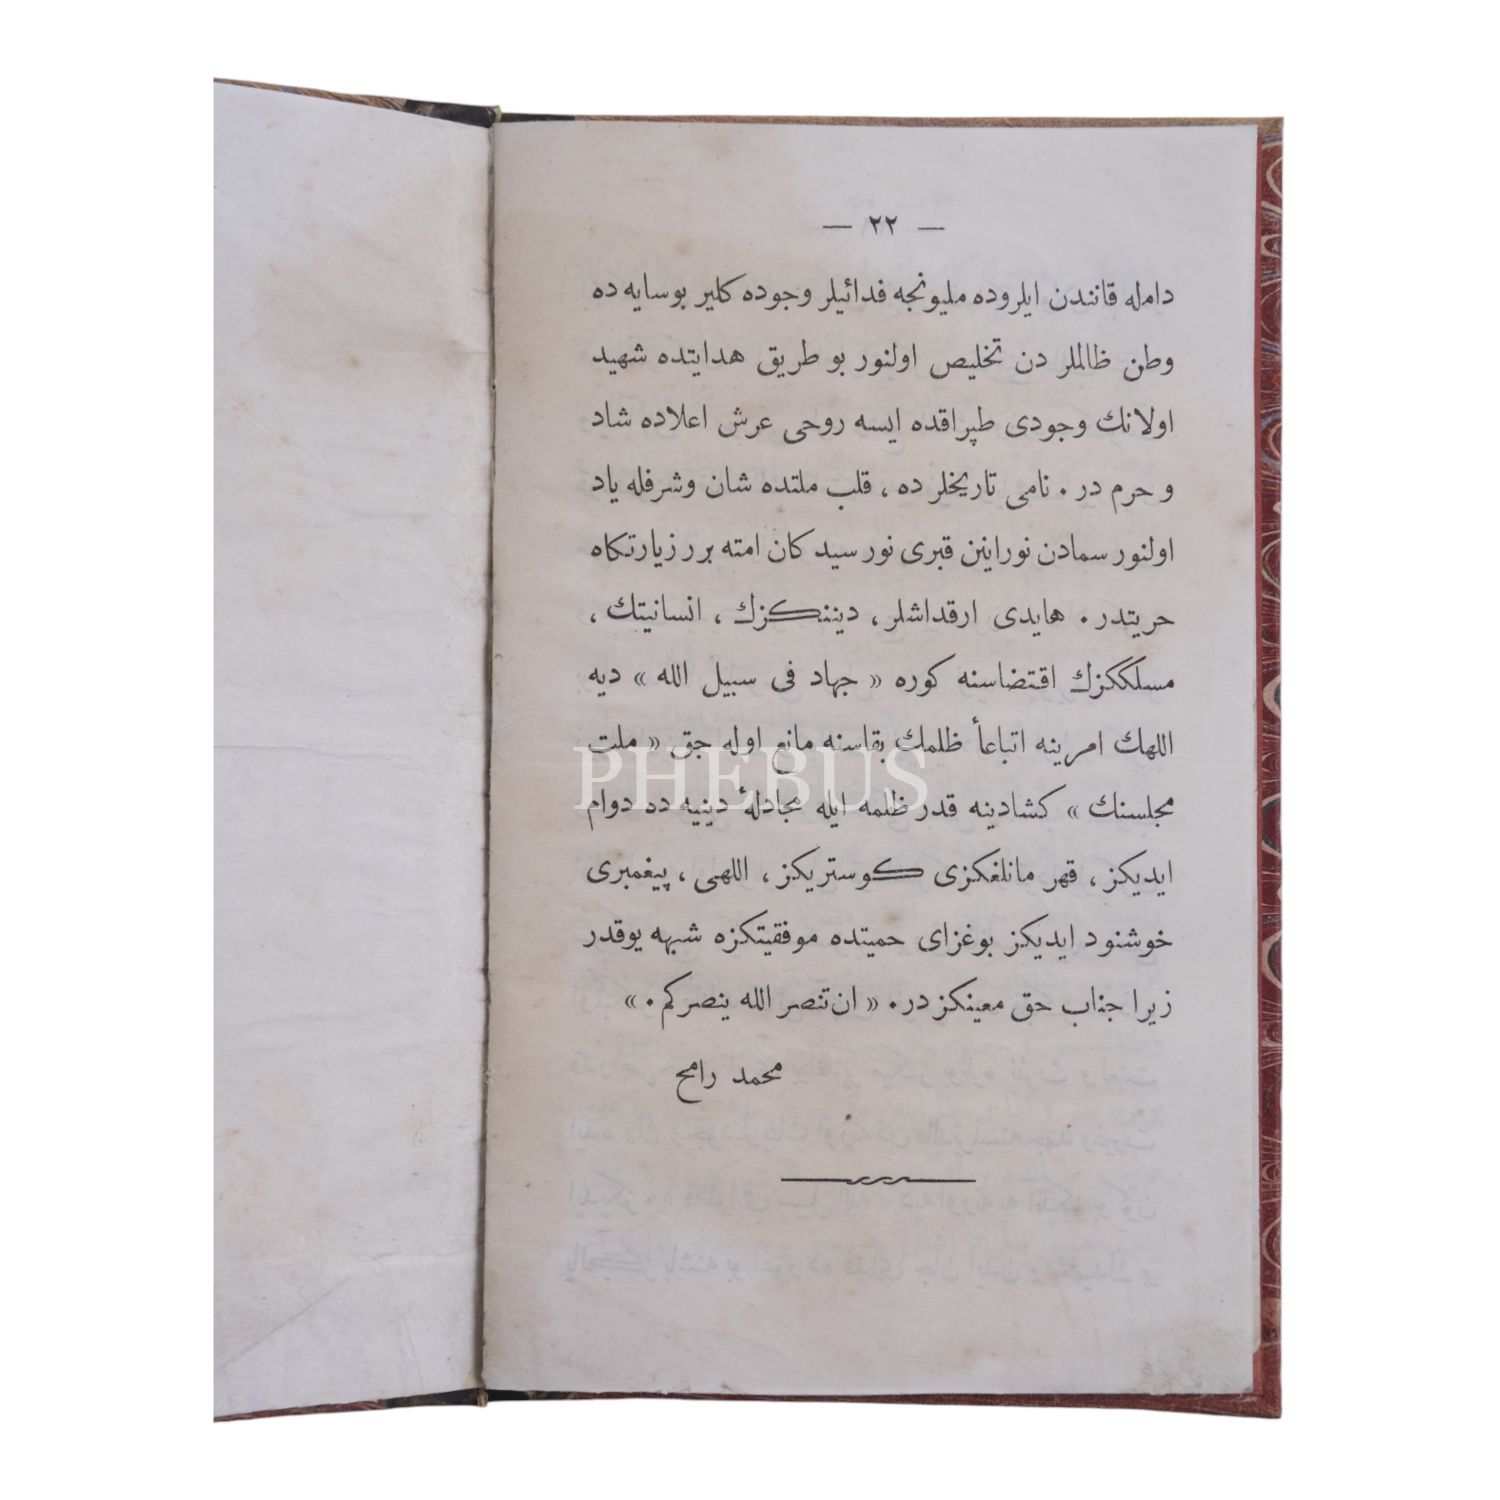 — ٢٢ —
دامله قانندن ایلروده ملیونجه فدائیلر وجوده کلیر بوسایه ده
وطن ظالملر دن تخلیص اولنور بو طریق هدایتده شهید
اولانك وجودی طپراقده ایسه روحی عرش اعلاده شاد
و حرم در . نامی تاریخلر ده ، قلب ملتده شان وشرفله یاد
اولنور سمادن نوراینن قبری نور سید کان امته برر زیارتکاه
حریتدر . هایدی ارقداشلر ، دیننکزك ، انسانیتك ،
مسلککزك اقتضاسنه کوره « جهاد فی سبیل الله » دیه
اللهك امرینه اتباعأ ظلمك بقاسنه مانع اوله جق « ملت
مجلسنك » کشادینه قدر ظلمه ایله مجادلهٔ دینیه ده دوام
ایدیکز ، قهر مانلغکزی کوستریکز ، اللهی ، پیغمبری
خوشنود ایدیکز بوغزای حمیتده موفقیتکزه شبهه یوقدر
زیرا جناب حق معینکز در . « ان تنصر الله ینصرکم . »
محمد رامح
PHEBUS